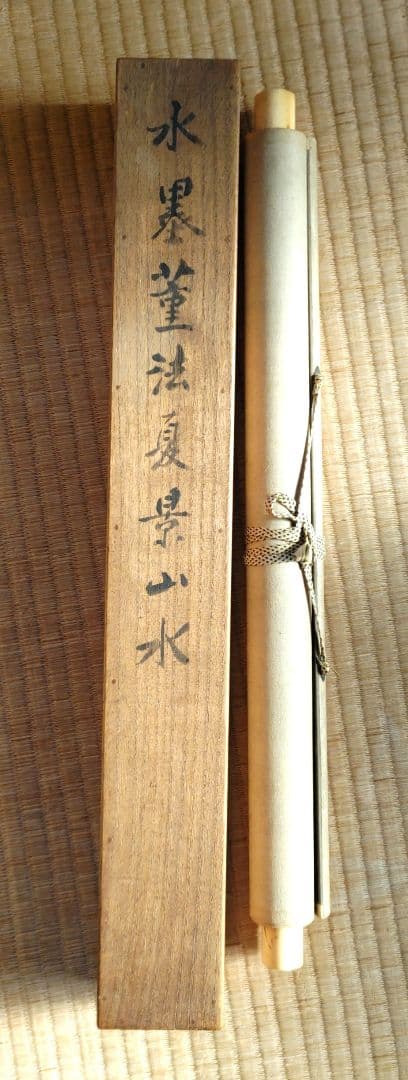 水墨董法夏景山水